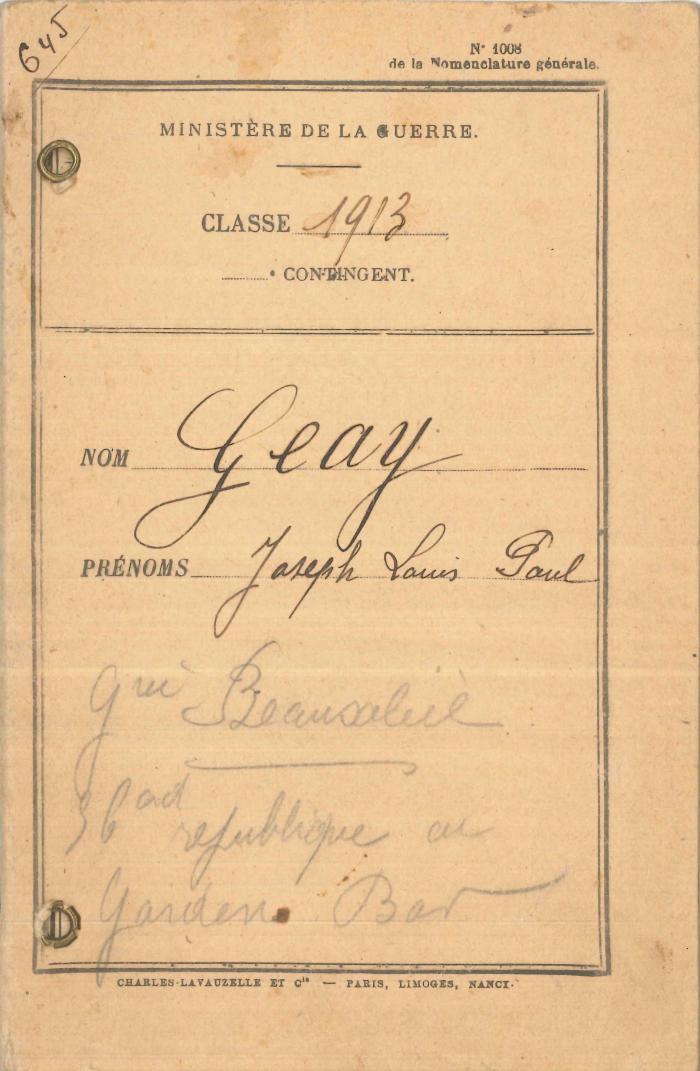 645
N° 1008
de la Nomenclature générale.
MINISTÈRE DE LA GUERRE.
CLASSE 1913
CONTINGENT.
NOM Geay
PRÉNOMS Joseph Louis Paul
Beausoleil
république ou
Garden Bar
CHARLES-LAVAUZELLE ET Cie — PARIS, LIMOGES, NANCY.